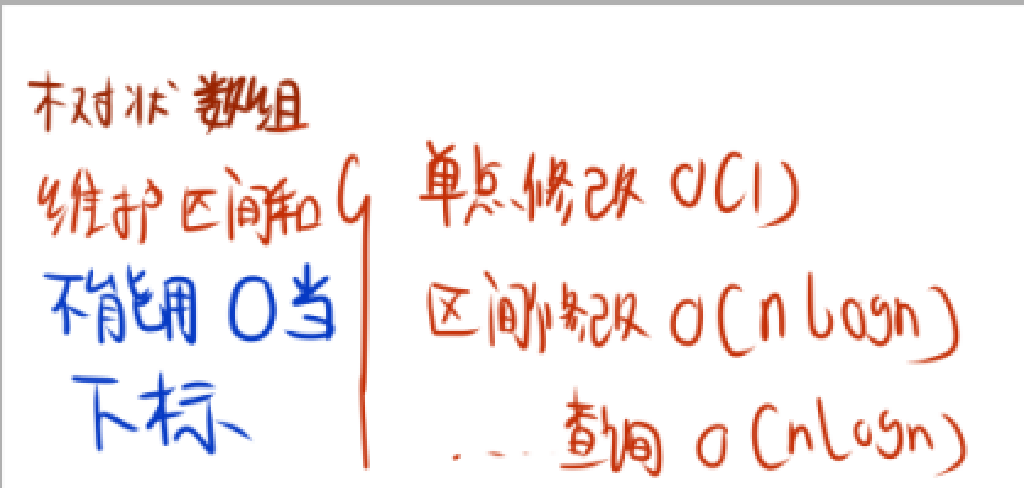 树状数组
维护区间和
不能用 0 当
下标、
单点修改 O(1)
区间修改 O(nlogn)
... 查询 O(nlogn)